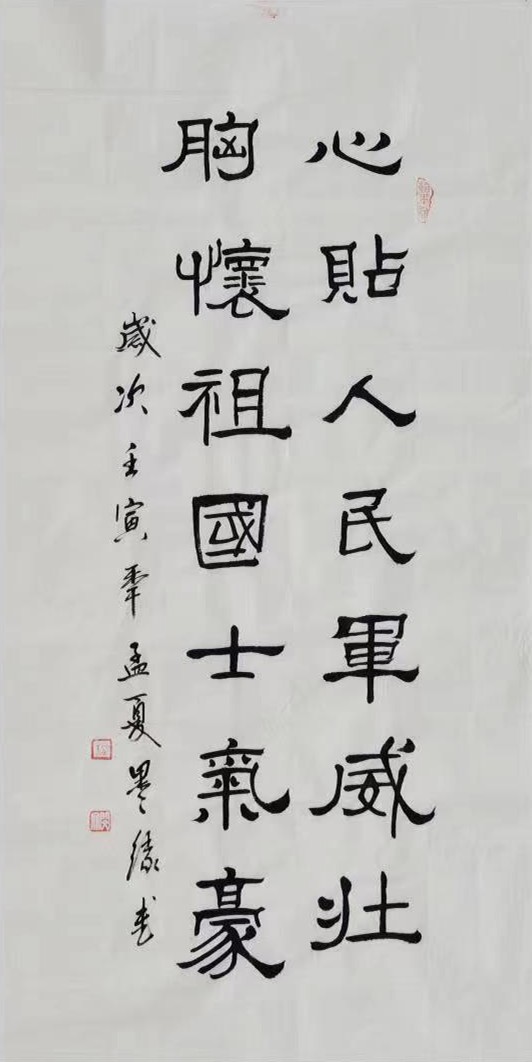 心貼人民軍威壯
胸懷祖國士氣豪
歲次壬寅年孟夏墨緣书